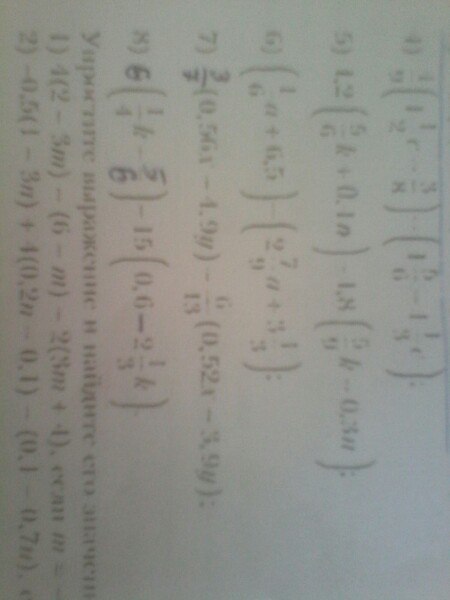 4) 4/9(1 1/2 c − 3/8) − (1 5/6 − 1 1/3 c);
5) 1,2(5/6 k + 0,1n) − 1,8(5/9 k − 0,3n);
6) (1/6 a + 6,5) − (2 7/9 a + 3 1/3);
7) 3/7(0,56x − 4,9y) − 6/13(0,52x − 3,9y);
8) 6(1/4 k − 5/6) − 15(0,6 − 2 1/3 k).
Упростите выражение и найдите его
1) 4(2 − 3m) − (6 − m) − 2(3m + 4), если m = −
2) −0,5(1 − 3n) + 4(0,2n − 0,1) − (0,1 − 0,7n),